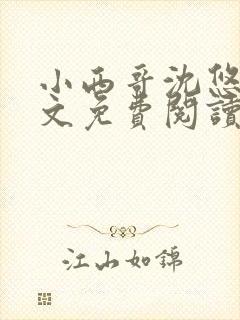 小西哥沈悠
文免費閱讀
江山如錦